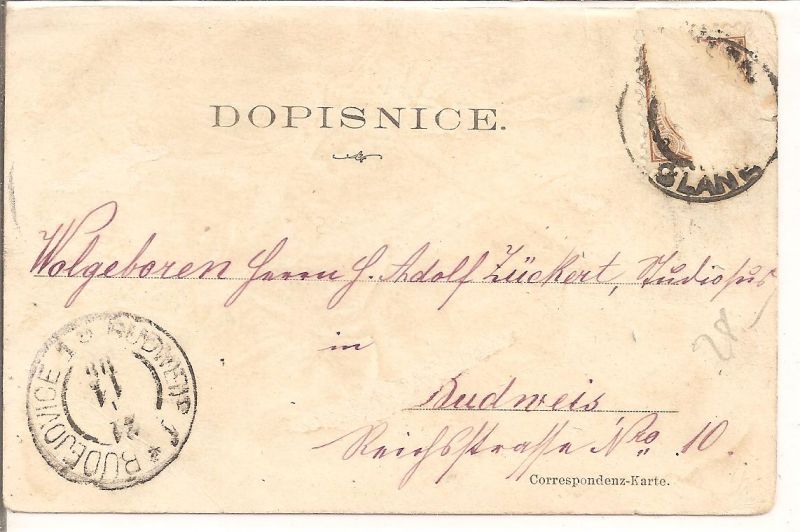 DOPISNICE.
SLANÉ
Wolgeboren Herrn H. Adolf Zückert, Studiosus
in
Budweis
Reichsstrasse Nro 10.
28
BUDĚJOVICE 1 BUDWEIS
Correspondenz-Karte.